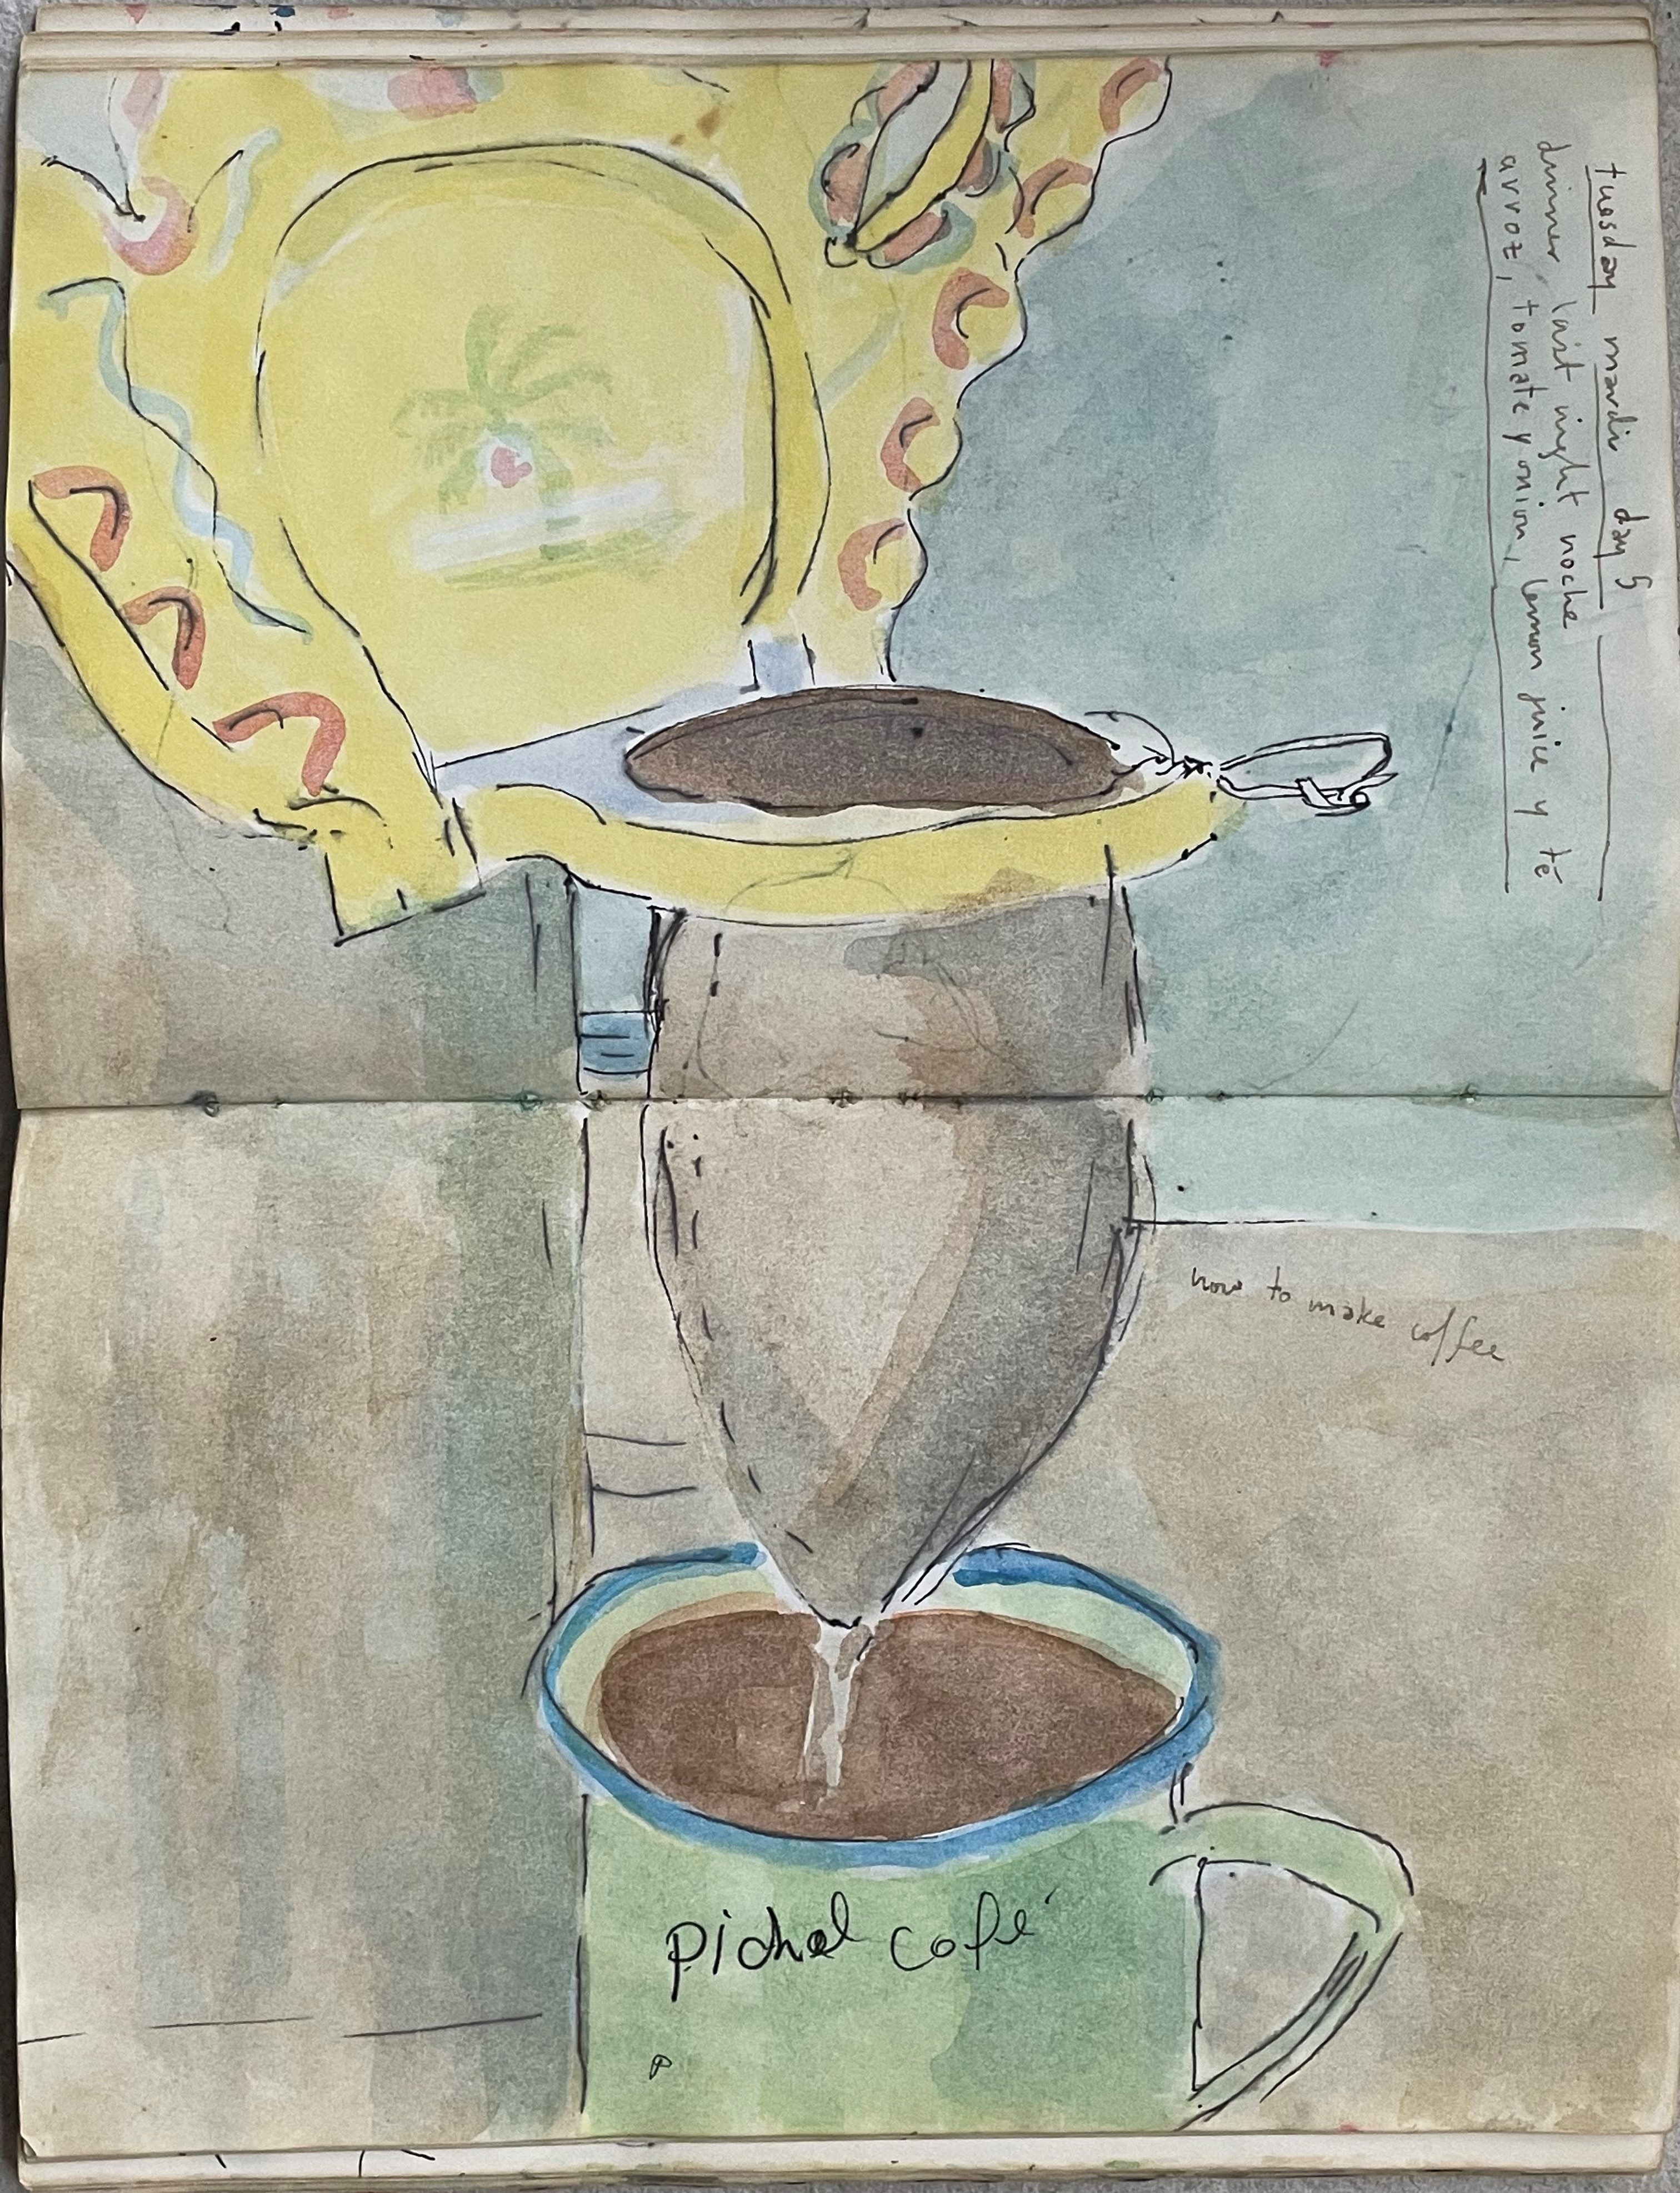 tuesday mardi day 5
dinner last night noche
arroz, tomate y onion, lemon juice y té
how to make coffee
pichel café